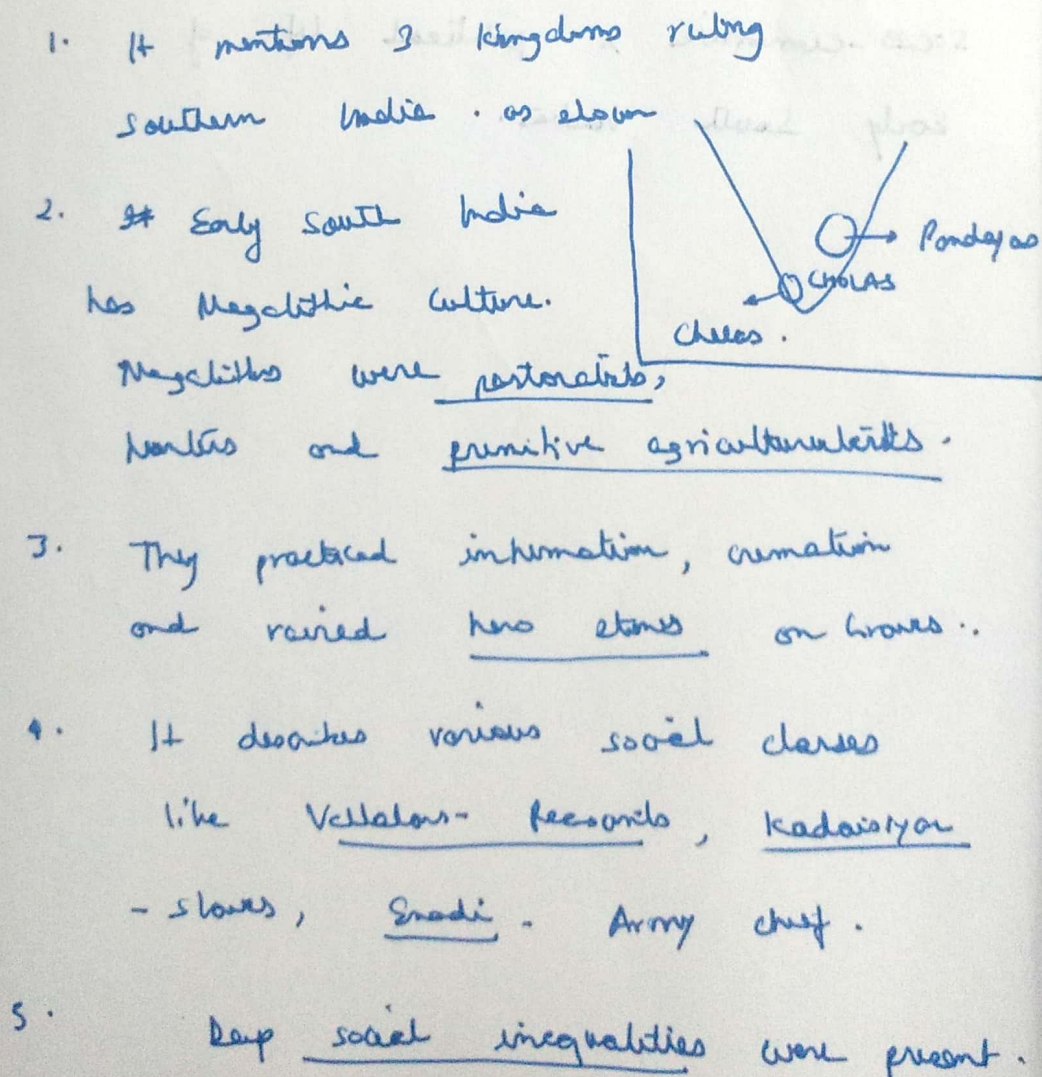 1. It mentions 3 kingdoms ruling
southern India. as shown
2. Early South India
has Megalithic Culture.
Megaliths were pastoralists,
hunters and primitive agriculturulists.
Pandayas
CHOLAS
Cheras.
3. They practiced inhumation, cremation
and raised hero stones on Graves..
4. It describes various social classes
like Vellalars - Peasants, Kadaisiyar
- slaves, Enadi - Army chief.
5. Deep social inequalities were present.